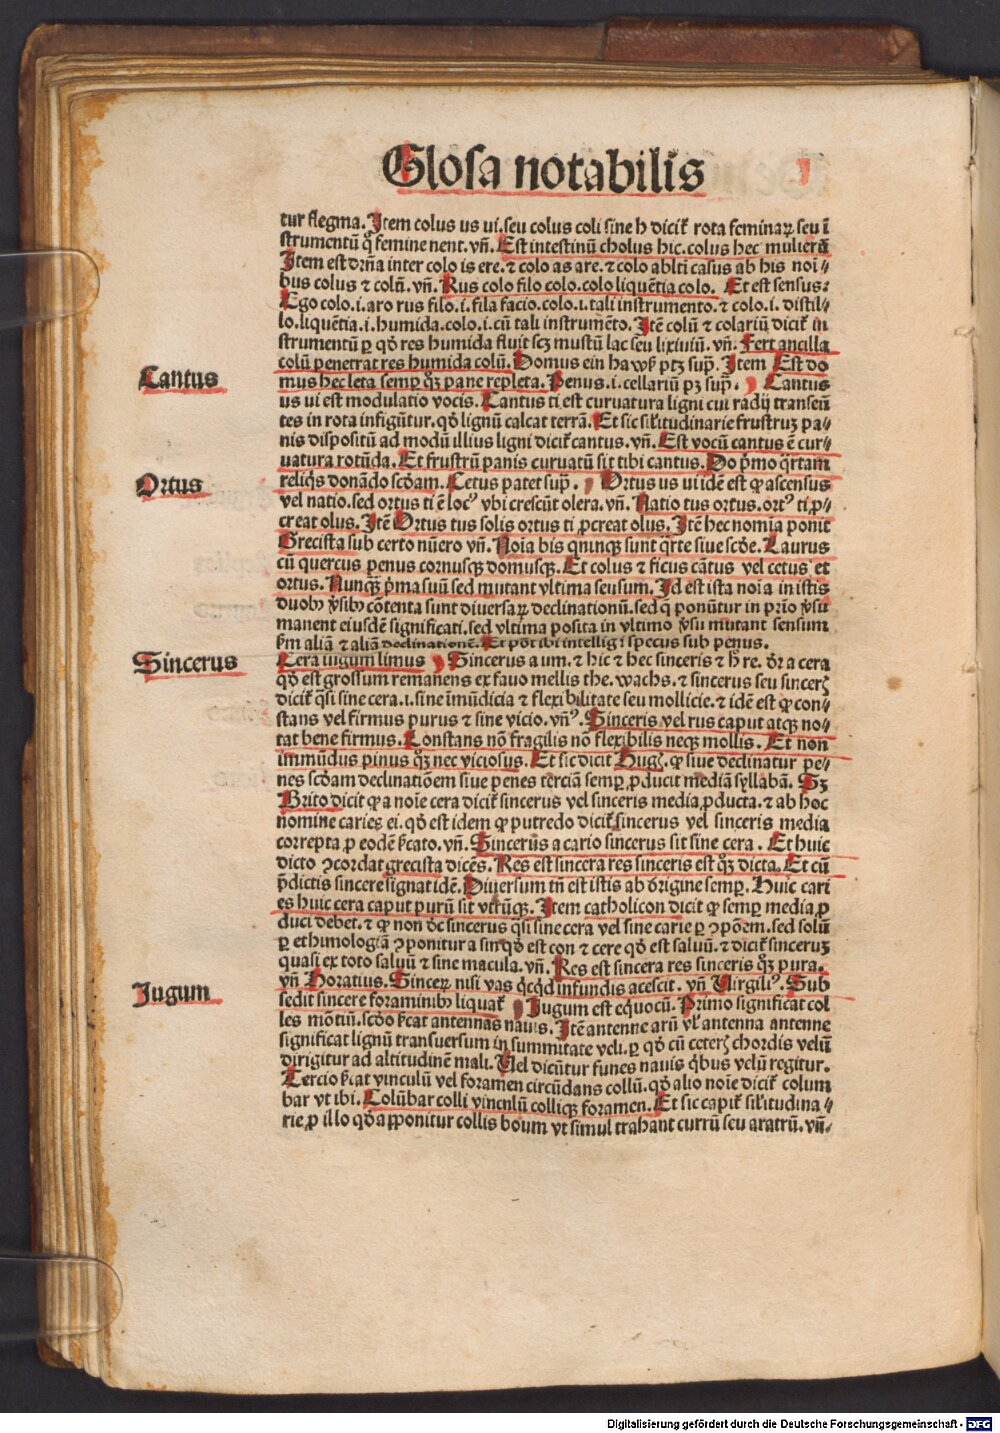 Glosa notabilis
tur flegma. Item colus us ui. seu colus coli sine h dicit̃ rota feminaꝝ seu ĩ
strumentũ q̃ femine nent. vñ. Est intestinũ cholus hic. colus hec mulierũ
Item est drña inter colo is ere. ⁊ colo as are. ⁊ colo ablti casus ab his noi⸗
bus colus ⁊ colũ. vñ. Rus colo filo colo. colo liquẽtia colo. Et est sensus:
Ego colo. i. aro rus filo. i. fila facio. colo. i. tali instrumento. ⁊ colo. i. distil⸗
lo. liquẽtia. i. humida. colo. i. cũ tali instrumẽto. Itẽ colũ ⁊ colariũ dicit̃ in
strumentũ ꝑ qď res humida fluit scꝫ mustũ lac seu lixiuiũ. vñ. Fert ancilla
colũ penetrat res humida colũ. Domus ein ptꝫ sup̃. Item Est do
mus hec leta semꝑ qꝫ pane repleta. Penus. i. cellariũ pꝫ sup̃. Cantus
Cantus
us ui est modulatio vocis. Cantus ti est curuatura ligni cui radij transeũ
tes in rota infigũtur. qď lignũ calcat terrã. Et sic silitudinarie frustruꝫ pa⸗
nis dispositũ ad modũ illius ligni dicit̃ cantus. vñ. Est vocũ cantus ẽ cur⸗
uatura rotũda. Et frustrũ panis curuatũ sit tibi cantus. Do p̃mo q̃rtam
reliqs donãdo scďam. Cetus patet sup̃. Ortus us ui idẽ est qꝙ ascensus
Ortus
vel natio. sed ortus ti ẽ locꝰ vbi crescũt olera. vñ. Natio tus ortus. ortꝰ ti ꝓ⸗
creat olus. Itẽ Ortus tus solis ortus ti ꝓcreat olus. Itẽ hec nomĩa ponit
Grecista sub certo nũero vñ. Noĩa bis quinqꝫ sunt q̃rte siue scďe. Laurus
cũ quercus penus cornusqꝫ domusqꝫ. Et colus ⁊ ficus cãtus vel cetus et
ortus. Nunqꝫ p̃ma suũ sed mutant vltima seusum. Id est ista noĩa in istis
duobꝫ v̓sibꝫ cõtenta sunt diuersaꝝ declinationũ. sed q̃ ponũtur in prĩo v̓su
manent eiusdẽ significati. sed vltima posita in vltimo v̓su mutant sensum
ẜm aliã ⁊ aliã declinationẽ. Et põt ibi intelligi specus sub penus.
Cera iugum limus Sincerus a um. ⁊ hic ⁊ hec sinceris ⁊ h re. dr̃ a cera
Sincerus
qď est grossum remanens ex fauo mellis the. wachs. ⁊ sincerus seu sinceꝝ
dicit̃ q̃si sine cera. i. sine imũdicia ⁊ flexibilitate seu mollicie. ⁊ idẽ est ꝙ con⸗
stans vel firmus purus ⁊ sine vicio. vñꝰ. Sinceris vel rus caput atqꝫ no⸗
tat bene firmus. Constans nõ fragilis nõ flexibilis neqꝫ mollis. Et non
immũdus pinus qꝫ nec viciosus. Et sic dicit Hug̃. ꝙ siue declinatur pe⸗
nes scďam declinatiõem siue penes terciã semꝑ ꝓducit mediã syllabã. Sꝫ
Brito dicit ꝙ a noĩe cera dicit̃ sincerus vel sinceris media ꝓducta. ⁊ ab hoc
nomine caries ei. qď est idem ꝙ putredo dicit̃ sincerus vel sinceris media
correpta ꝓ eodẽ ẜcato. vñ. Sincerus a cario sincerus sit sine cera. Et huic
dicto ↄcordat grecista dicẽs. Res est sincera res sinceris est qꝫ dicta. Et cũ
p̃dictis sincere signat idẽ. Diuersum tñ est istis ab origine semꝑ. Huic cari
es huic cera caput purũ sit vtrũqꝫ. Item catholicon dicit ꝙ semꝑ media ꝓ
duci debet. ⁊ ꝙ non dr̃ sincerus q̃si sine cera vel sine carie ꝑ ↄpõem. sed solũ
ꝑ ethimologiã ↄponitur a sin qď est con ⁊ cere qď est saluũ. ⁊ dicit̃ sinceruꝫ
quasi ex toto saluũ ⁊ sine macula. vñ. Res est sincera res sinceris qꝫ pura.
vñ Horatius. Sinceꝝ nisi vas q̃cqď infundis acescit. vñ Uirgiliꝰ. Sub
Iugum
sedit sincere foraminibꝫ liquat̃ Iugum est equocũ. Primo significat col
les mõtiũ. scďo ẜcat antennas nauis. Itẽ antenne arũ vl̓ antenna antenne
significat lignũ transuersum in summitate veli. ꝑ qď cũ ceteꝝ chordis velũ
dirigitur ad altitudinẽ mali. Uel dicũtur funes nauis q̃bus velũ regitur.
Tercio ẜcat vinculũ vel foramen circũdans collũ. qď alio noĩe dicit̃ colum
bar vt ibi. Colũbar colli vinculũ colliqꝫ foramen. Et sic capit̃ silitudina⸗
rie ꝓ illo qď apponitur collis boum vt simul trahant currũ seu aratrũ. vñ⸗
Digitalisierung gefördert durch die Deutsche Forschungsgemeinschaft - DFG